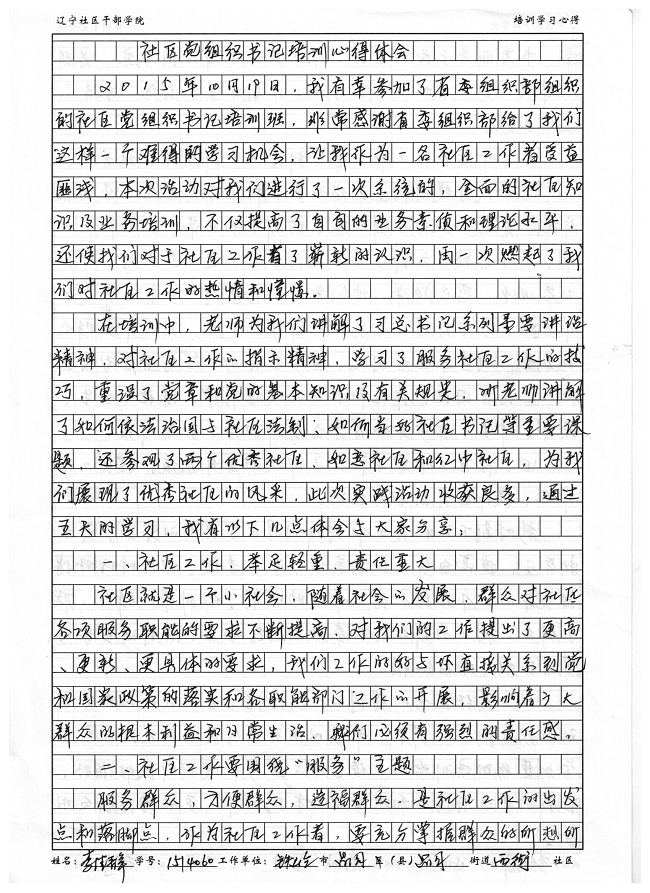 辽宁社区干部学院 培训学习心得
社区党组织书记培训心得体会
2015年10月19日，我有幸参加了省委组织部组织
的社区党组织书记培训班，非常感谢省委组织部给了我们
这样一个难得的学习机会，让我作为一名社区工作者受益
匪浅，本次活动对我们进行了一次系统的，全面的社区知
识及业务培训，不仅提高了自身的业务素质和理论水平，
还使我们对于社区工作有了崭新的认识，再一次燃起了我
们对社区工作的热情和憧憬。
在培训中，老师为我们讲解了习总书记系列重要讲话
精神，对社区工作的指示精神，学习了服务社区工作的技
巧，重温了党章和党的基本知识及有关规定，听老师讲解
了如何依法治国与社区法制、如何当好社区书记等重要课
题，还参观了两个优秀社区，如意社区和红巾社区，为我
们展现了优秀社区的风采，此次实践活动收获良多，通过
五天的学习，我有以下几点体会与大家分享：
一、社区工作，举足轻重，责任重大
社区就是一个小社会，随着社会的发展，群众对社区
各项服务职能的要求不断提高，对我们的工作提出了更高
、更新、更具体的要求，我们工作的好与坏直接关系到党
和国家政策的落实和各职能部门工作的开展，影响着广大
群众的根本利益和日常生活，我们必须有强烈的责任感。
二、社区工作要围绕“服务”主题
服务群众，方便群众，造福群众，是社区工作的出发
点和落脚点，作为社区工作者，要充分掌握群众的所想所
姓名： 学号：1514060 工作单位： 市 区（县） 街道 西街 社区